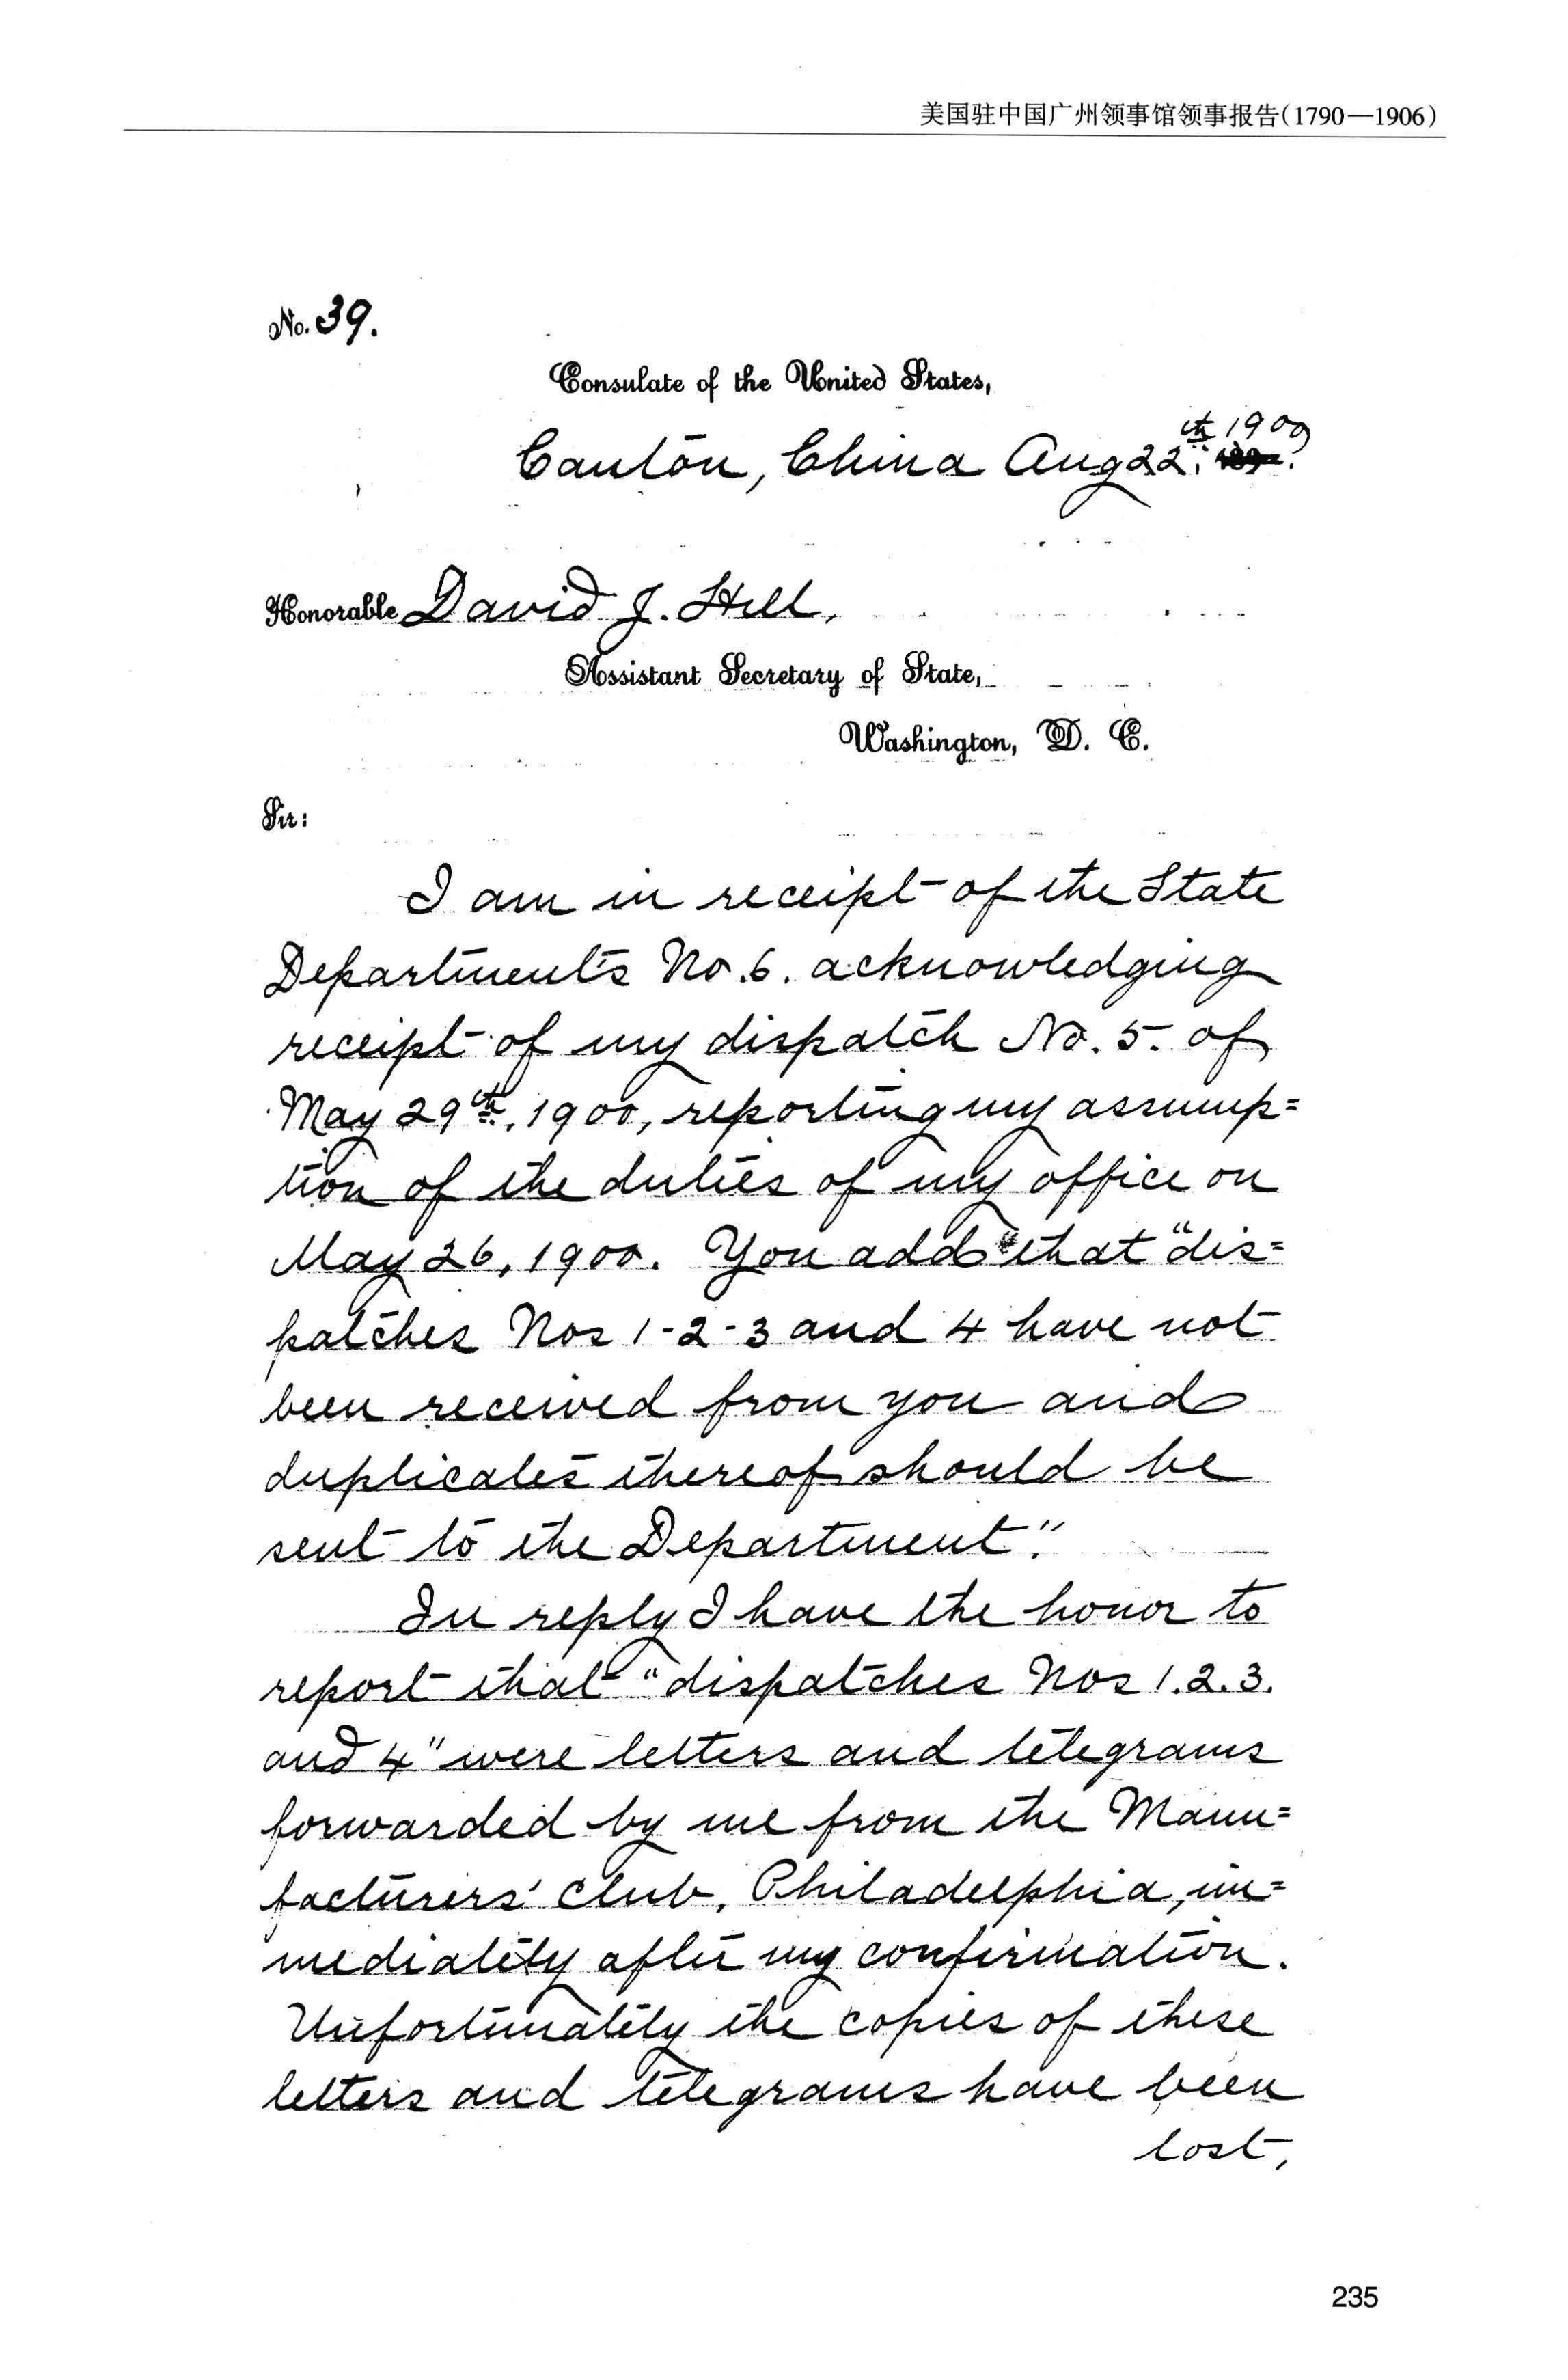 美国驻中国广州领事馆领事报告(1790—1906)
No. 39.
Consulate of the United States,
Canton, China Aug 22th 1900.
Honorable David J. Hill,
Assistant Secretary of State,
Washington, D. C.
Sir:
I am in receipt of the State
Department's No. 6. acknowledging
receipt of my dispatch No. 5. of
May 29th, 1900, reporting my assump=
tion of the duties of my office on
May 26, 1900. You add that "dis=
patches Nos 1-2-3 and 4 have not
been received from you and
duplicates thereof should be
sent to the Department."
In reply I have the honor to
report that "dispatches Nos 1.2.3.
and 4" were letters and telegrams
forwarded by me from the Manu=
facturers' Club, Philadelphia, im=
mediately after my confirmation.
Unfortunately the copies of these
letters and telegrams have been
lost,
235